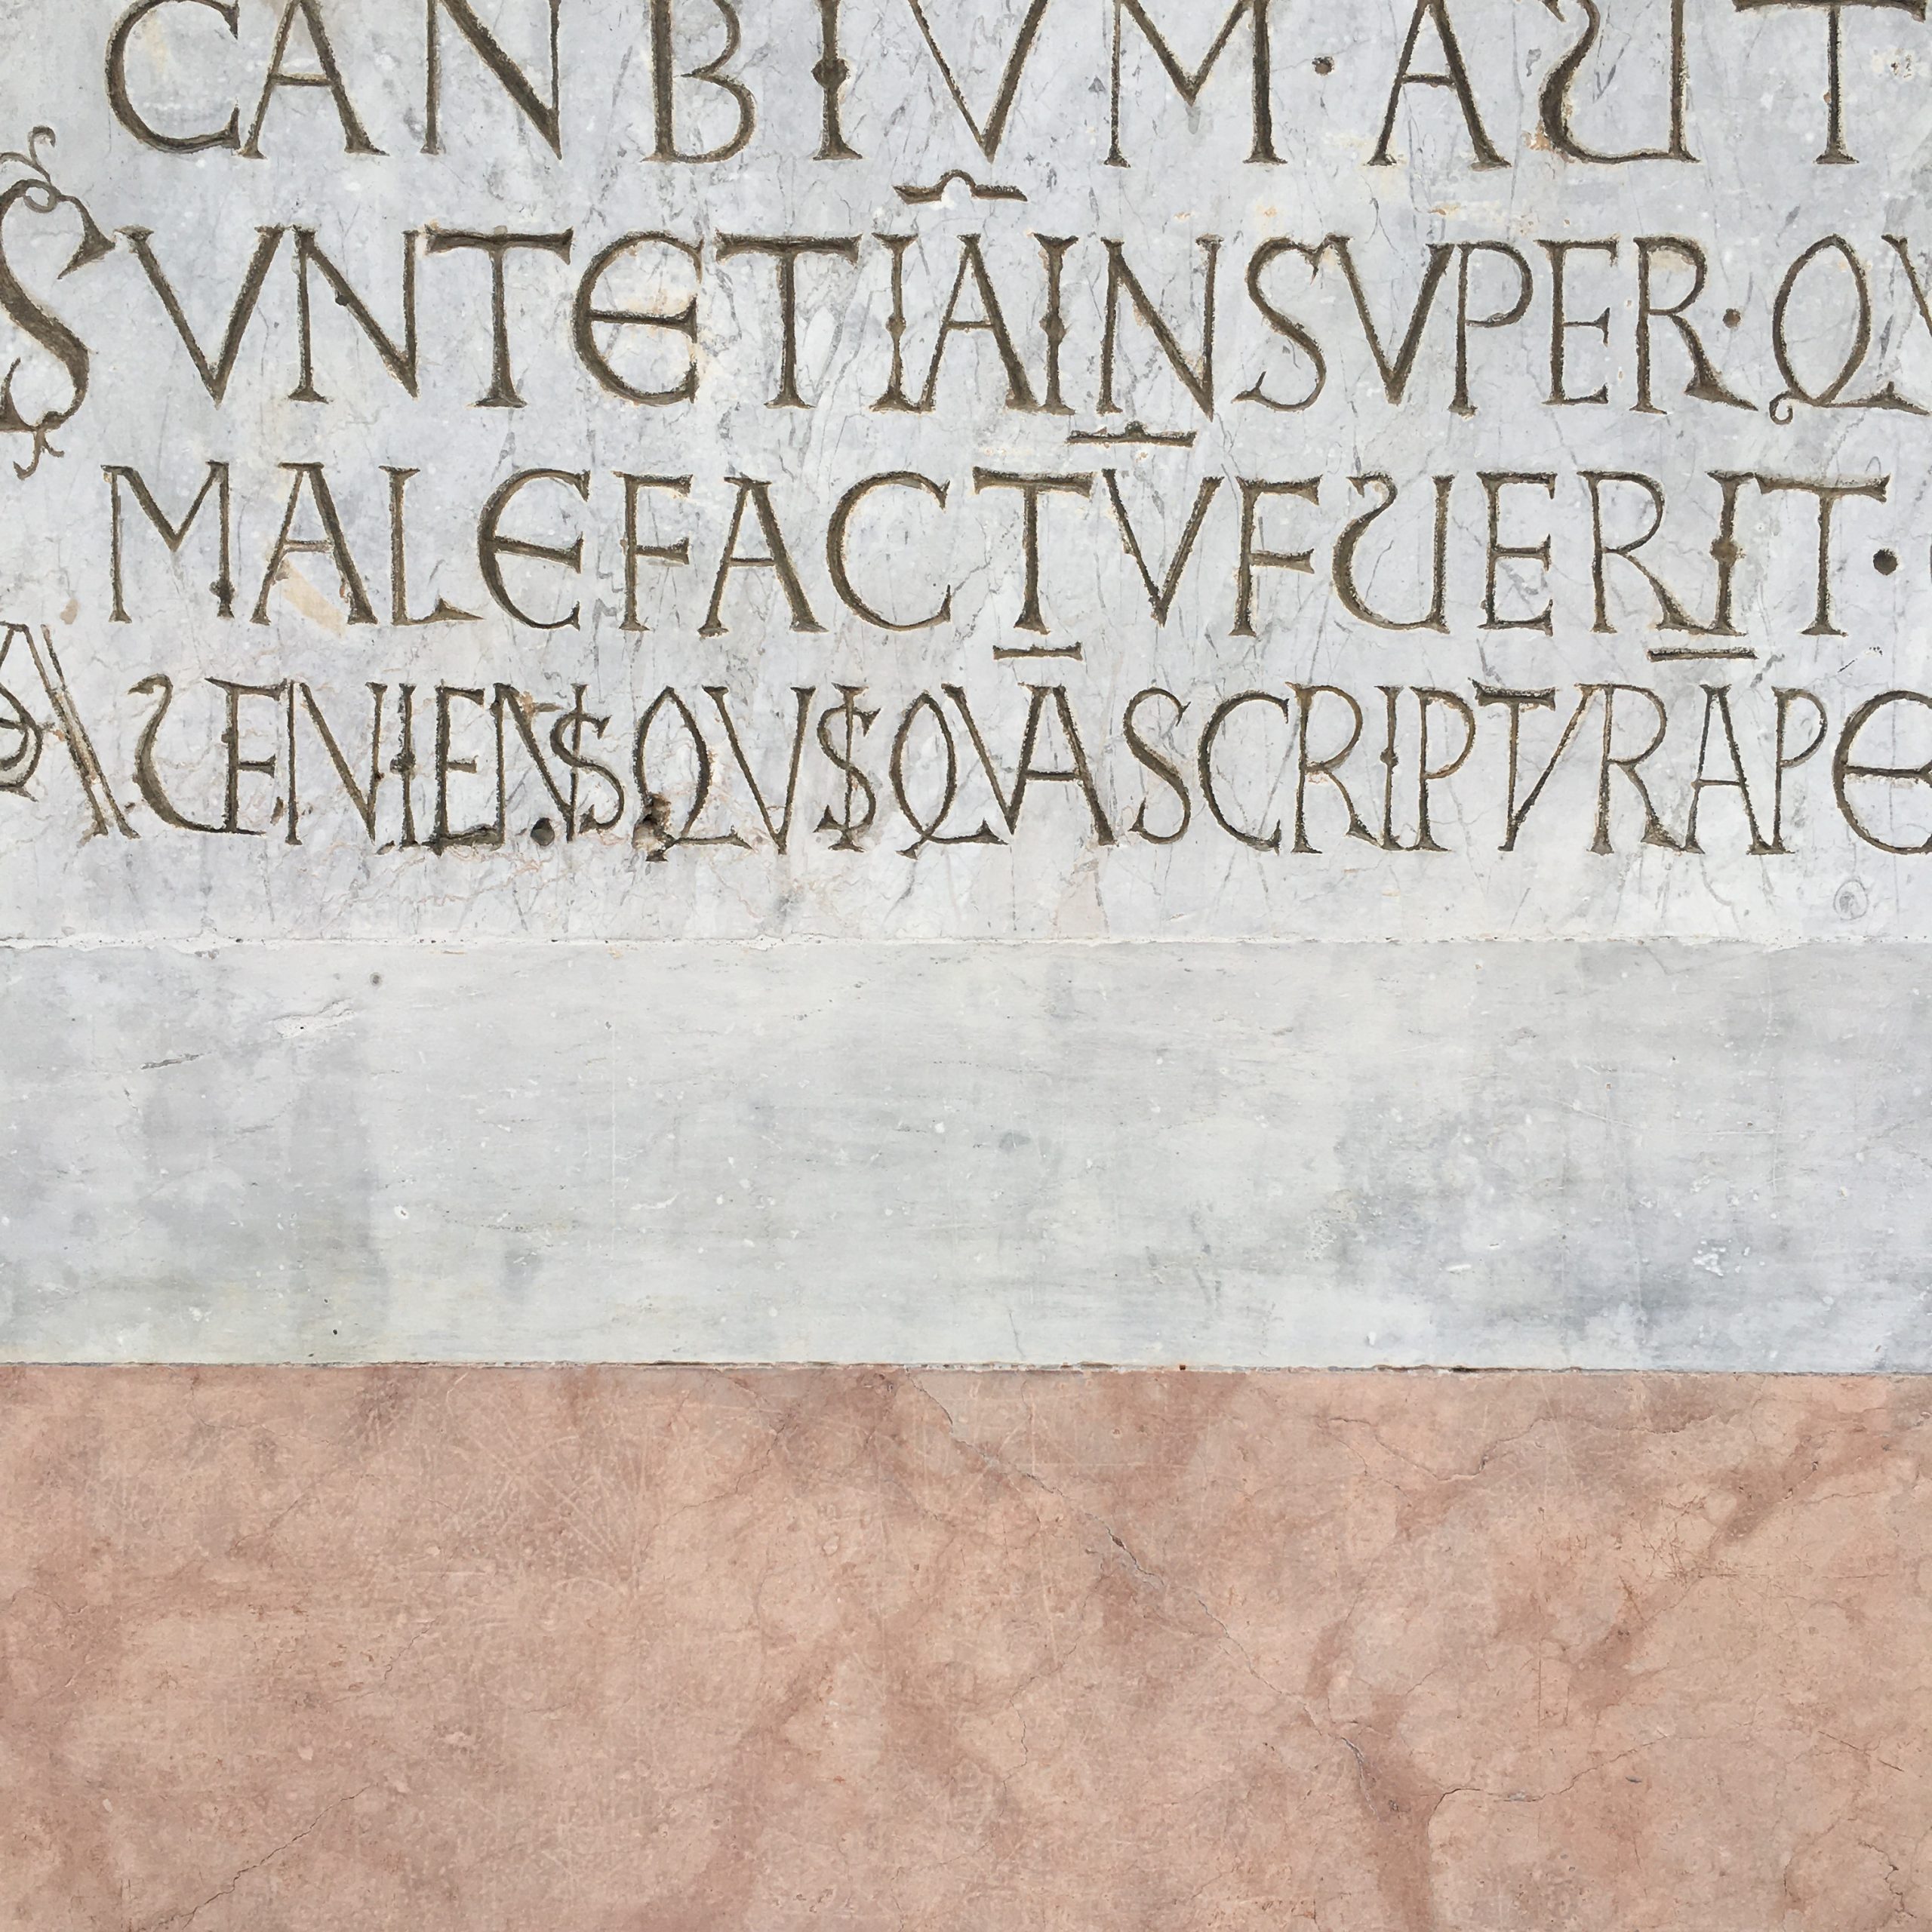 CANBIVM·AUT
SVNTETIĀINSVPER·QV
MALEFACTV̄FUERIT·
AUENIENSQVSQVĀSCRIPTVRĀPE